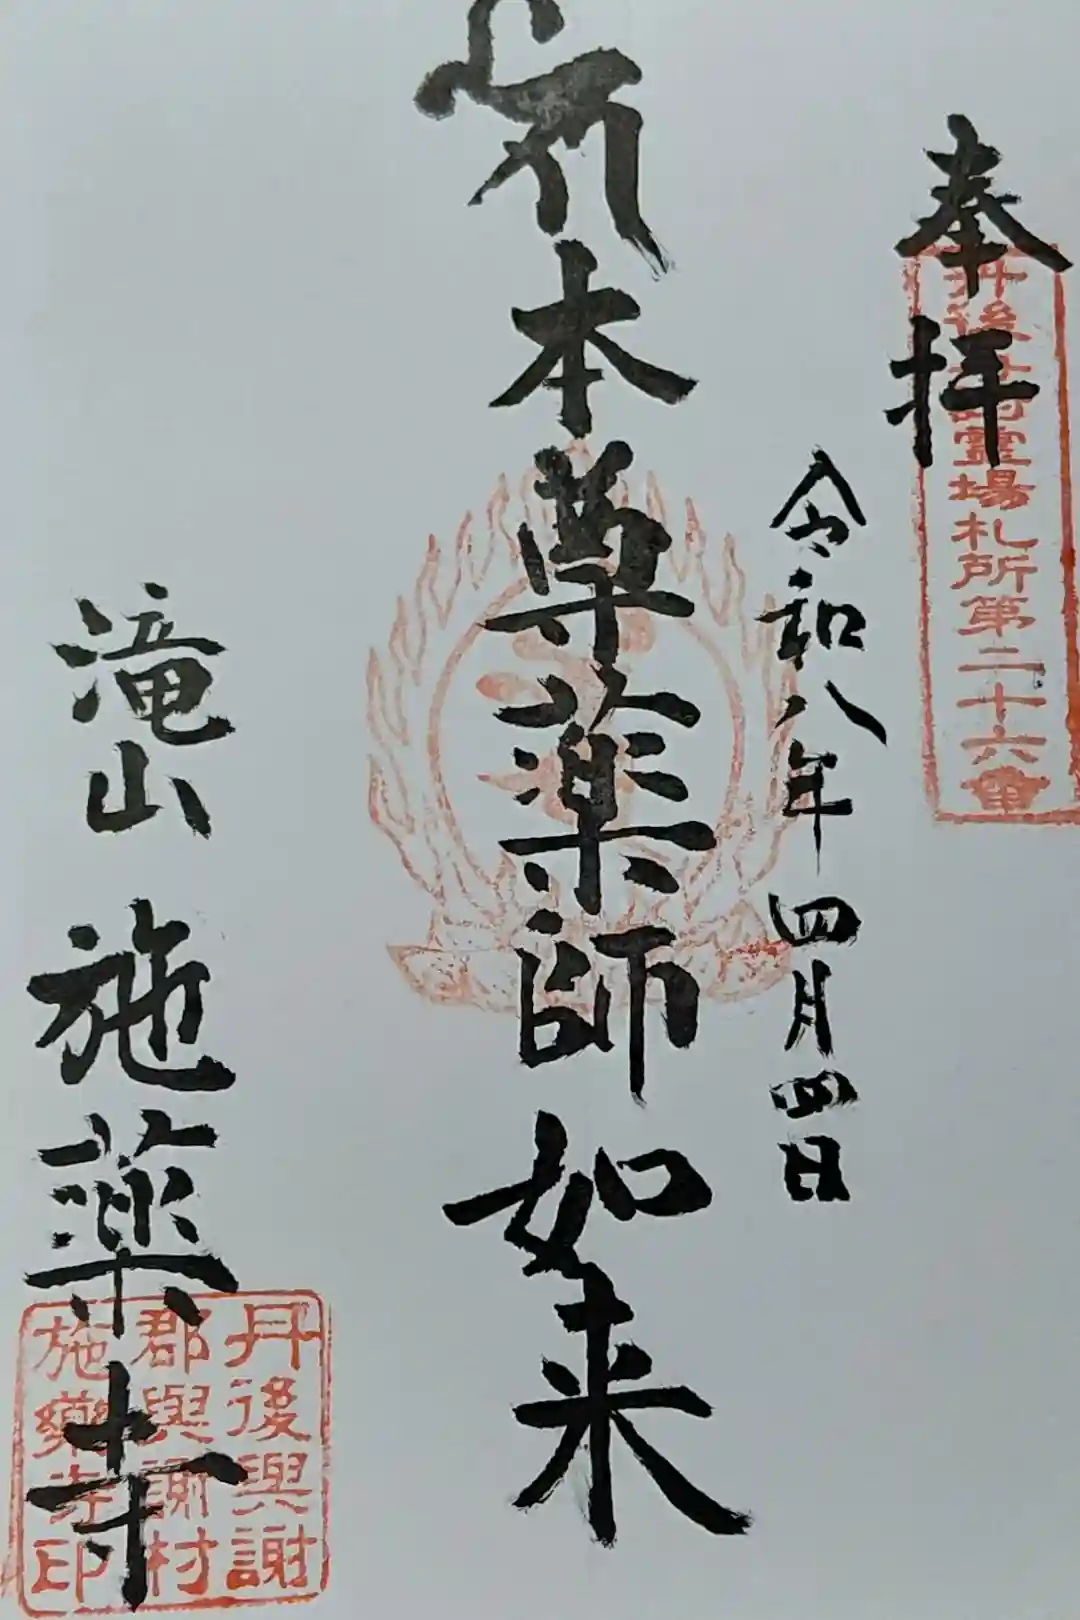 奉拝
丹後
霊場札所第二十六番
令和八年四月四日
本尊薬師如来
滝山 施薬寺
丹後與謝
郡與謝村
施薬寺印